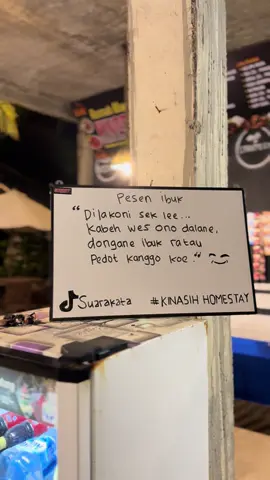 Pesen ibuk
"Dilakoni sek lee...
Kabeh wes ono dalane,
dongane ibuk ratau
Pedot kanggo koe."
Suarakata #KINASIH HOMESTAY